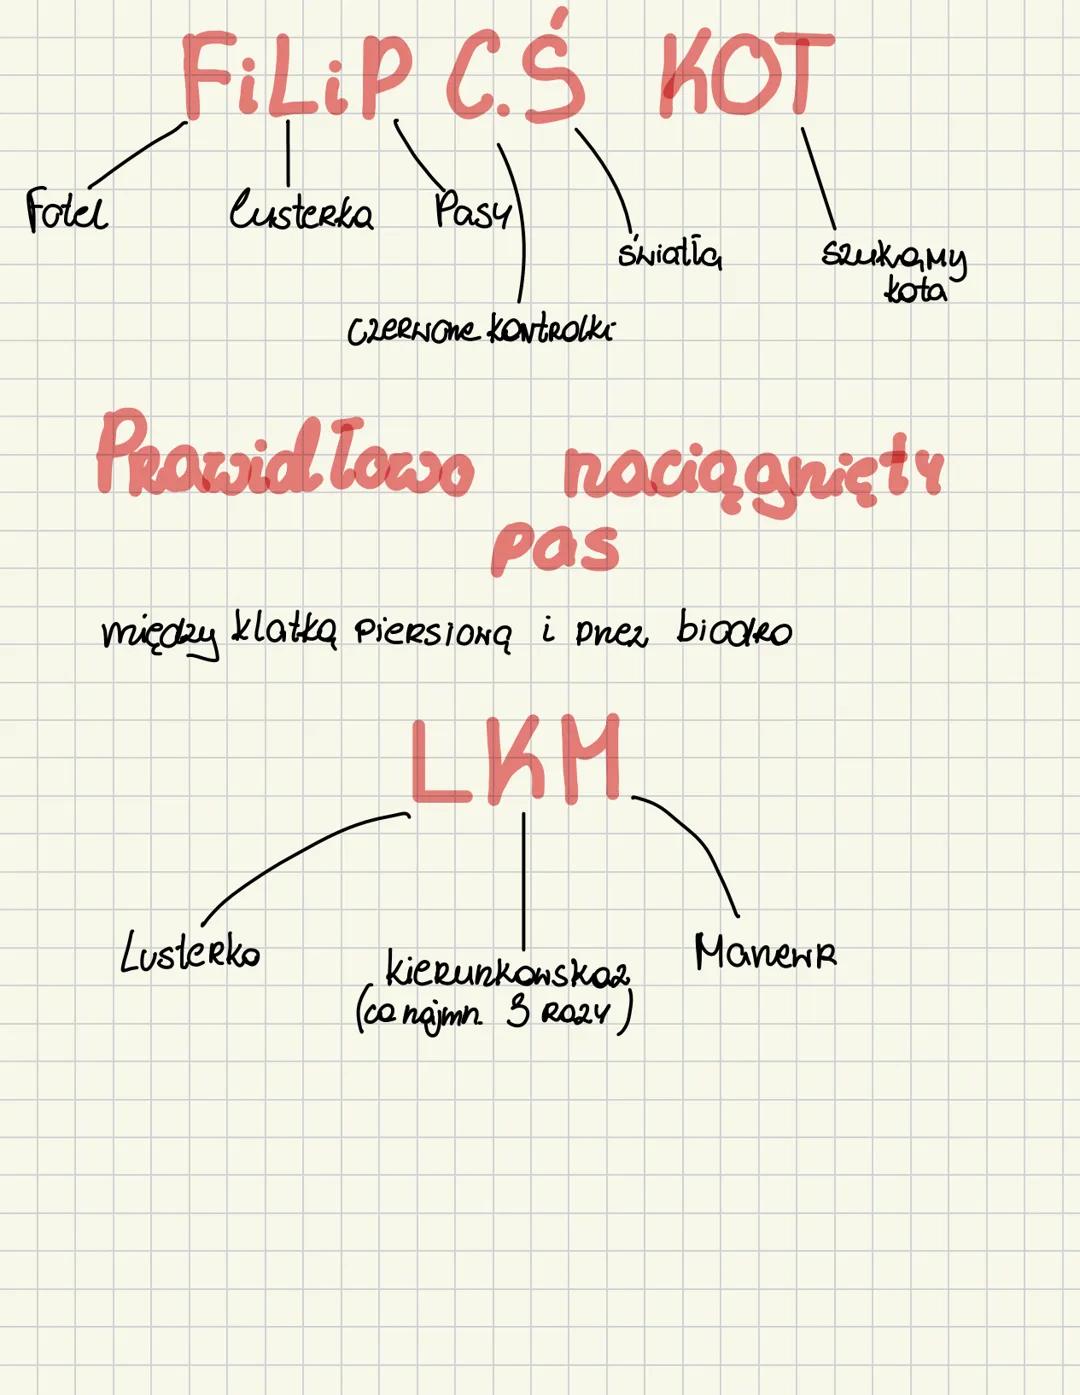 FiLiP C.Ś KOT
Fotel lusterka Pasy
światła szukamy
kota
czerwone kontrolki
Prawidłowo naciągnięty
pas
między klatką piersiową i przez biodro
LKM
Lusterko kierunkowskaz Manewr
(co najmn. 3 razy)